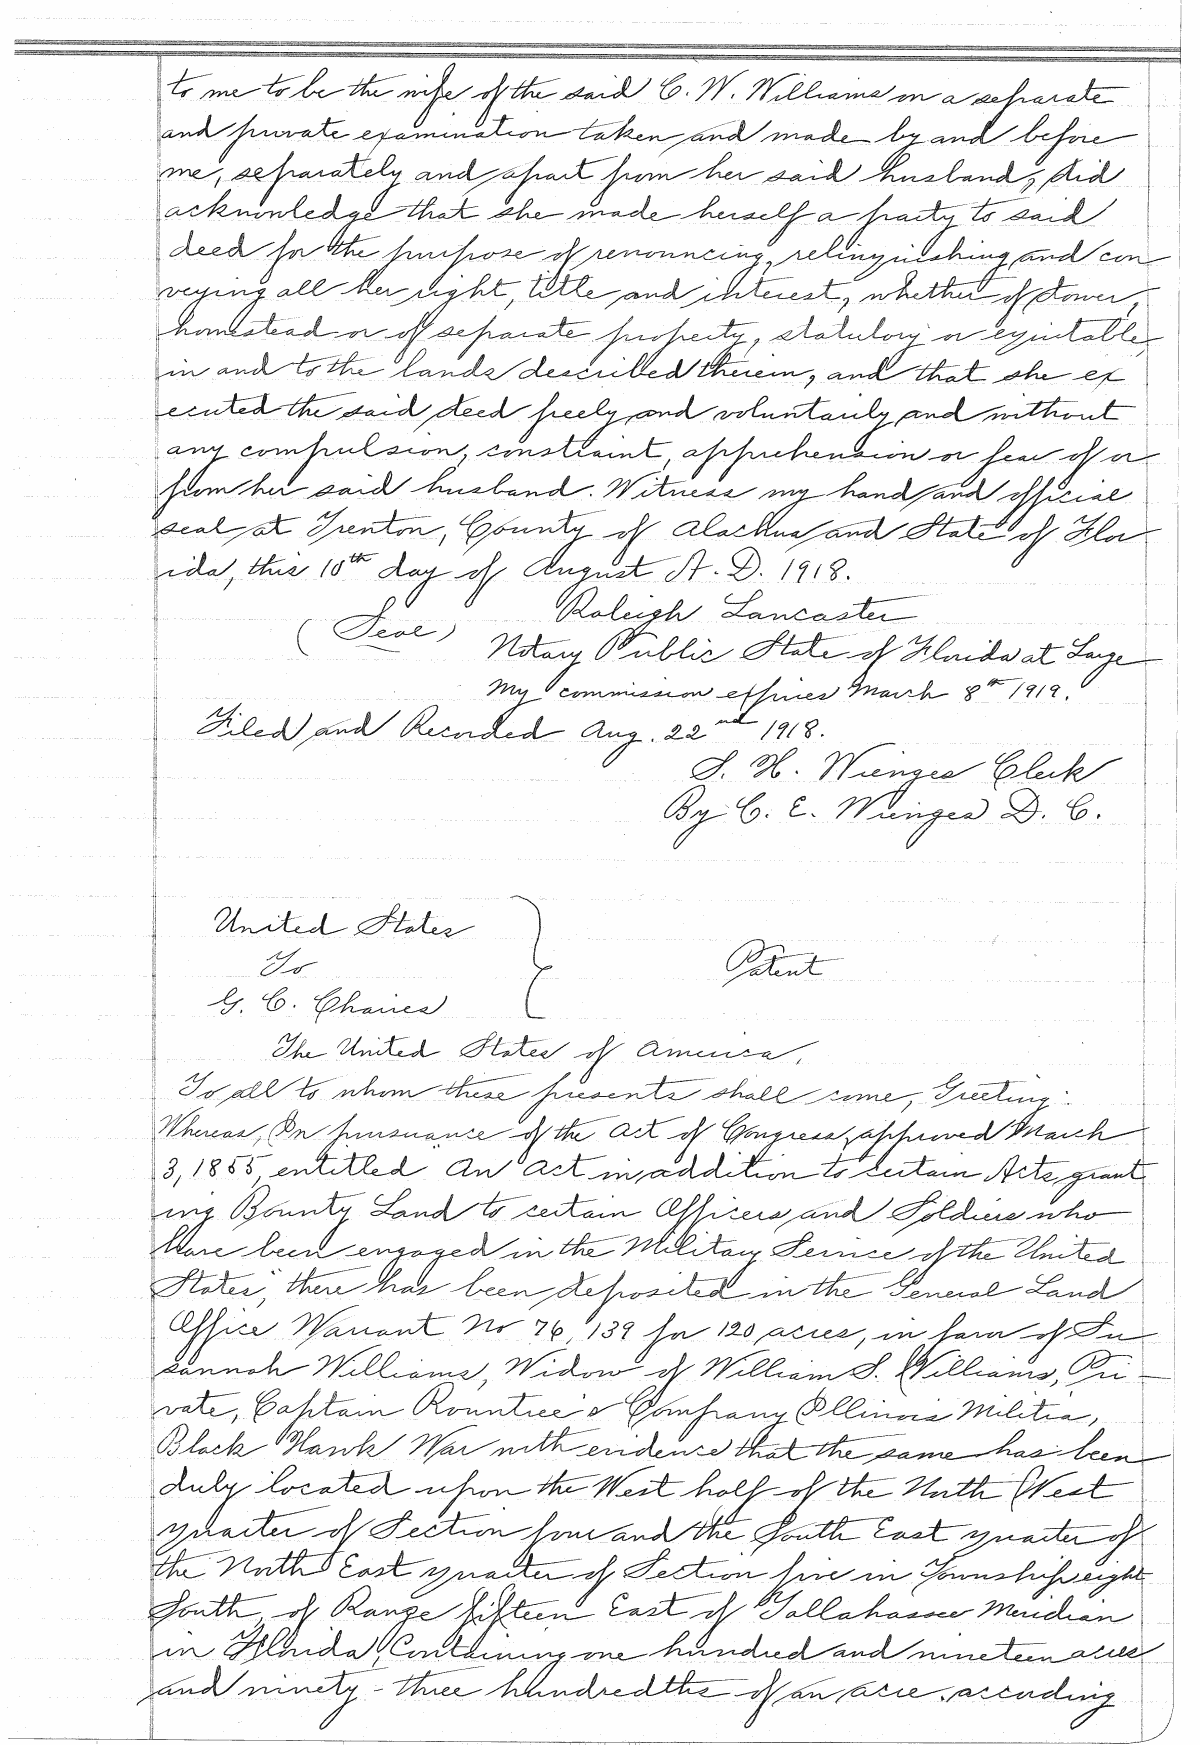 to me to be the wife of the said C. W. Williams on a separate
and private examination taken and made by and before
me, separately and apart from her said husband, did
acknowledge that she made herself a party to said
deed for the purpose of renouncing, relinquishing and con
veying all her right, title and interest, whether of dower,
homestead or of separate property, statutory or equitable,
in and to the lands described therein, and that she ex
ecuted the said deed freely and voluntarily and without
any compulsion, constraint, apprehension or fear of or
from her said husband. Witness my hand and official
seal at Trenton, County of Alachua and State of Flor
ida, this 10th day of August A. D. 1918.
Raleigh Lancaster
(Seal)
Notary Public State of Florida at Large
My commission expires March 8th 1919.
Filed and Recorded Aug. 22nd 1918.
S. H. Wienges Clerk
By C. E. Wienges D. C.
United States
To
Patent
G. C. Chaires
The United States of America,
To all to whom these presents shall come, Greeting:
Whereas, In pursuance of the Act of Congress, approved March
3, 1855, entitled An Act in addition to certain Acts, grant
ing Bounty Land to certain Officers and Soldiers who
have been engaged in the Military Service of the United
States", there has been deposited in the General Land
Office Warrant No 76,139 for 120 acres, in favor of Su
sannah Williams, Widow of William S. Williams, Pri-
vate, Captain Rountree's Company Illinois Militia,
Black Hawk War with evidence that the same has been
duly located upon the West half of the North West
quarter of Section four and the South East quarter of
the North East quarter of Section five in Township eight
South, of Range fifteen East of Tallahassee Meridian
in Florida, Containing one hundred and nineteen acres
and ninety-three hundredths of an acre, according